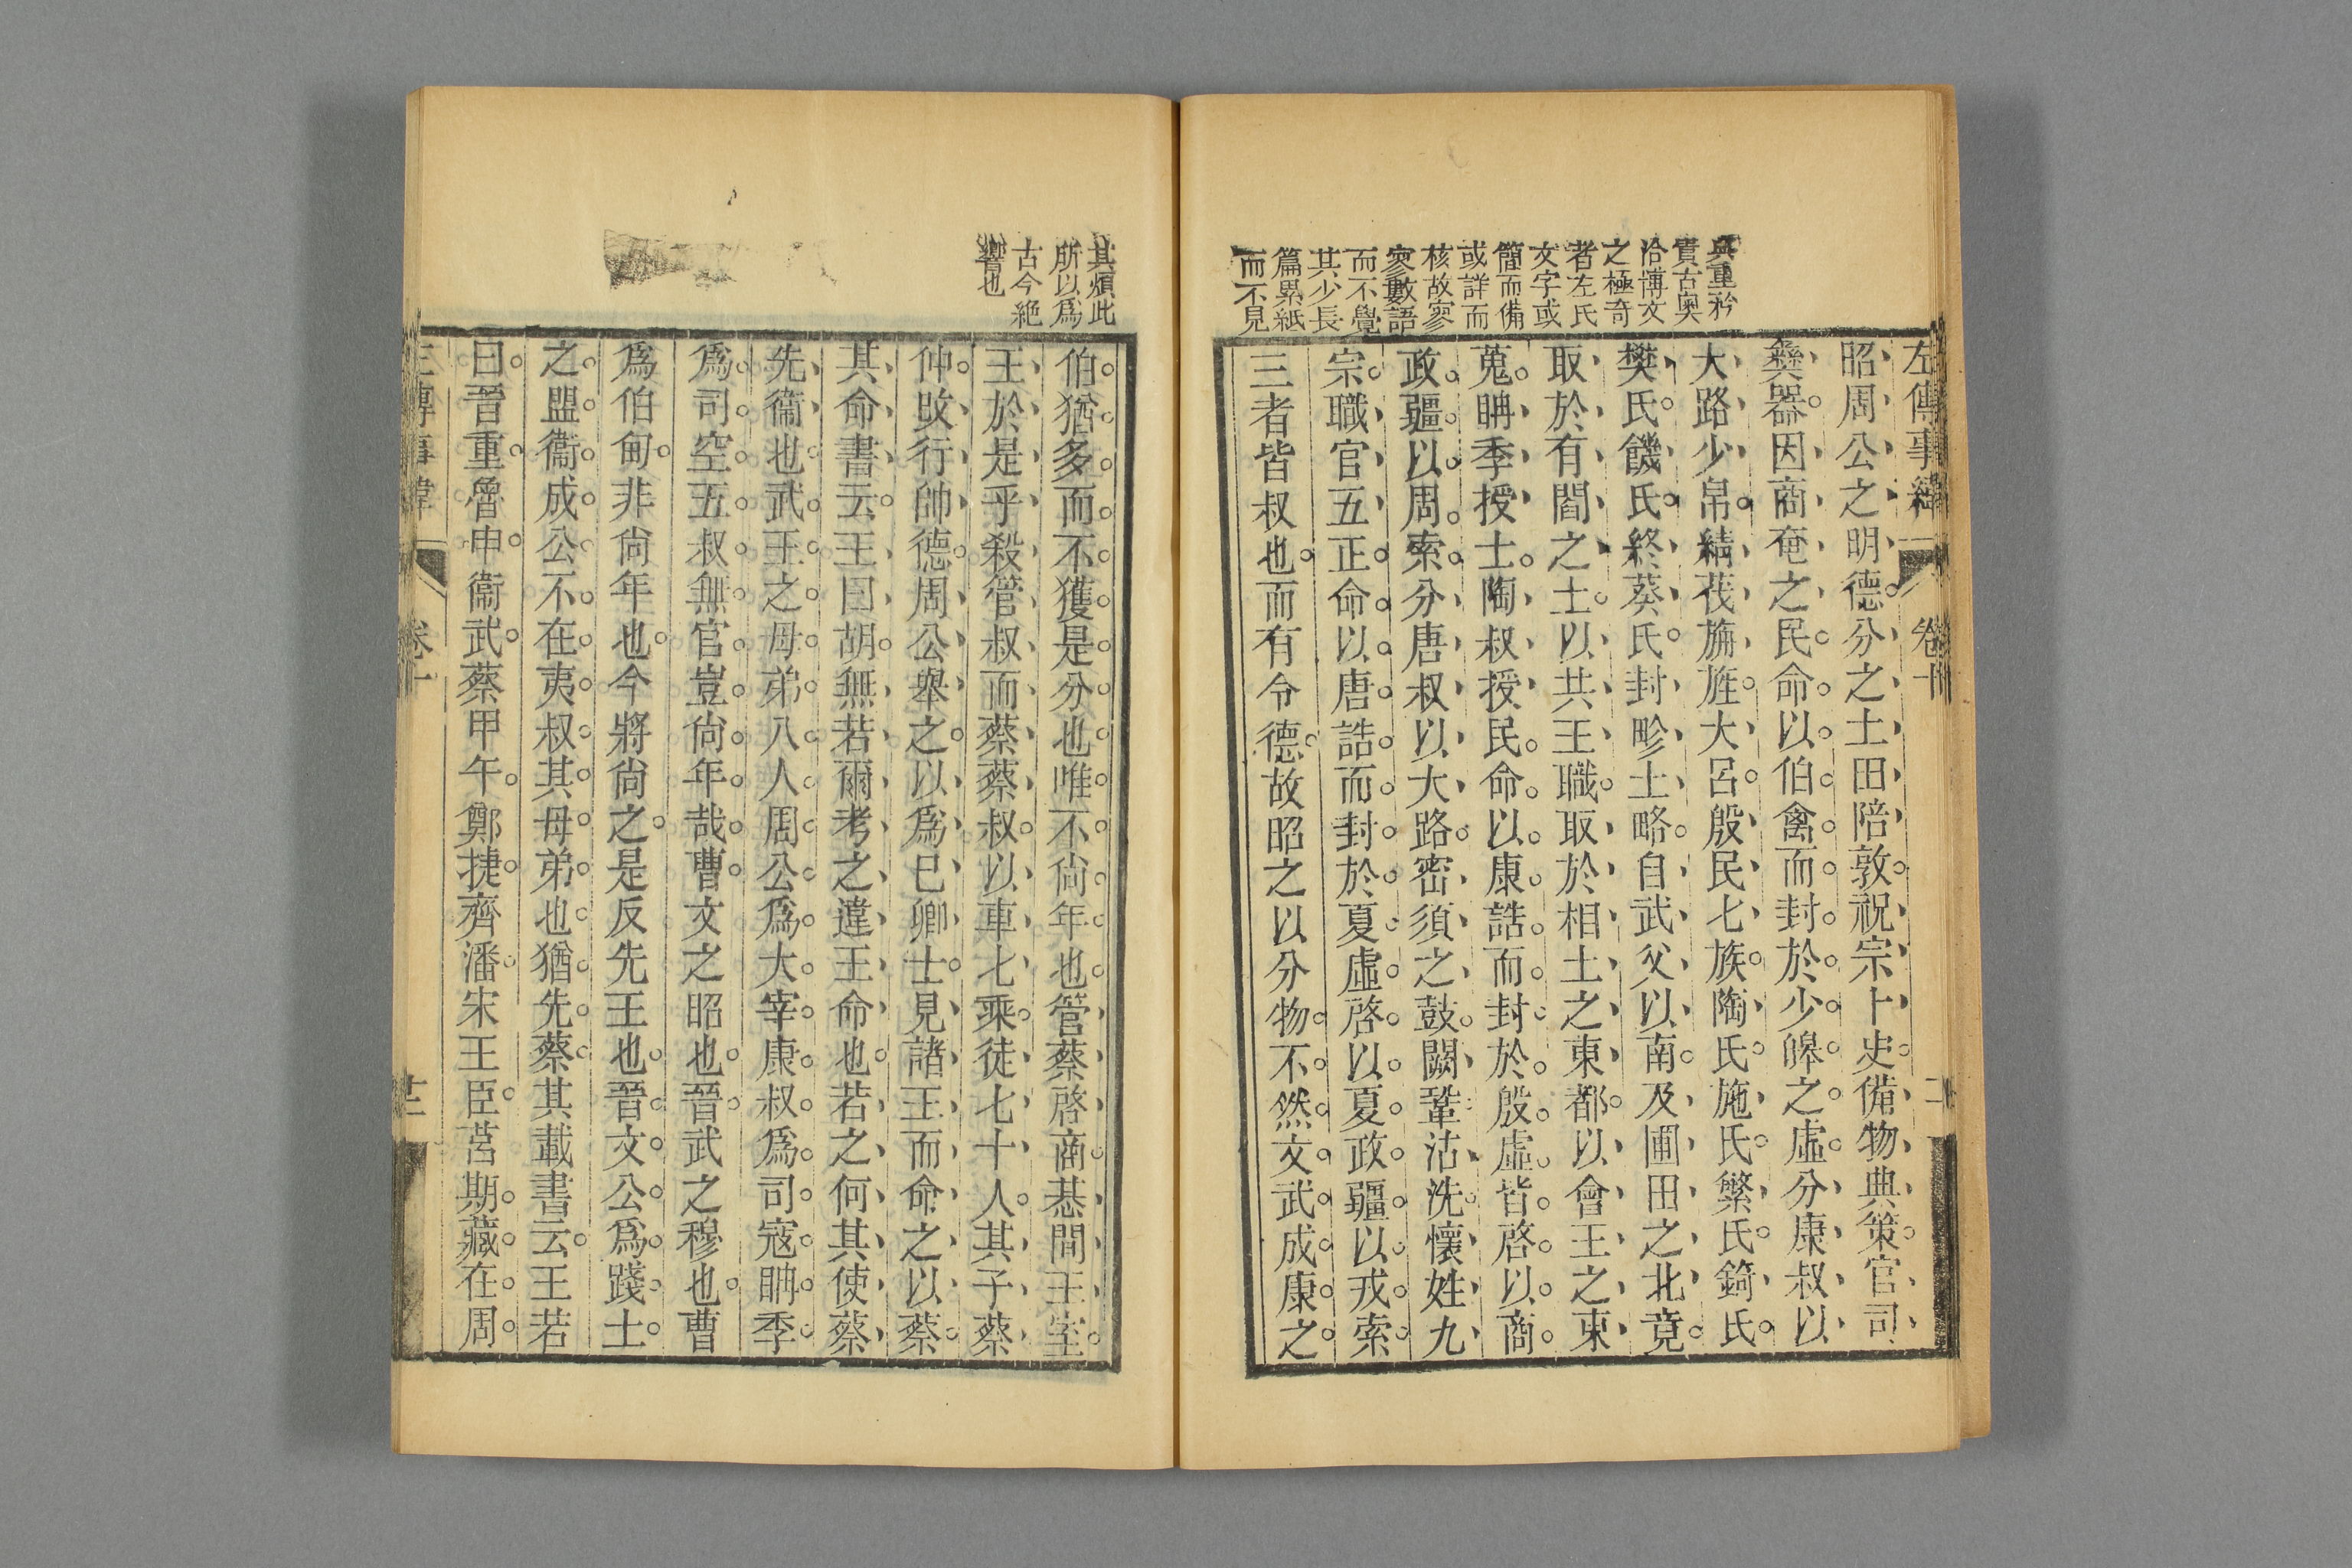 左傳事緯
卷十
二
典重矜
貴古奥
洽博文
之極奇
者左氏
文字或
簡而備
或詳而
核故寥
寥數語
而不覺
其少長
篇累紙
而不見
昭周公之明德分之土田陪敦祝宗卜史備物典策官司
彝器因商奄之民命以伯禽而封於少皞之虛分康叔以
大路少帛綪茷旃旌大呂殷民七族陶氏施氏繁氏錡氏
樊氏饑氏終葵氏封畛土略自武父以南及圃田之北竟
取於有閻之土以共王職取於相土之東都以會王之東
蒐聃季授土陶叔授民命以康誥而封於殷虛皆啓以商
政疆以周索分唐叔以大路密須之鼓闕鞏沽洗懷姓九
宗職官五正命以唐誥而封於夏虛啓以夏政疆以戎索
三者皆叔也而有令德故昭之以分物不然文武成康之
其煩此
所以爲
古今絶
響也
伯猶多而不獲是分也唯不尙年也管蔡啓商惎間王室
王於是乎殺管叔而蔡蔡叔以車七乘徒七十人其子蔡
仲改行帥德周公舉之以爲已卿士見諸王而命之以蔡
其命書云王曰胡無若爾考之違王命也若之何其使蔡
先衞也武王之母弟八人周公爲大宰康叔爲司寇聃季
爲司空五叔無官豈尙年哉曹文之昭也晉武之穆也曹
爲伯甸非尙年也今將尙之是反先王也晉文公爲踐土
之盟衞成公不在夷叔其母弟也猶先蔡其載書云王若
曰晉重魯申衞武蔡甲午鄭捷齊潘宋王臣莒期藏在周
傳事緯
卷十